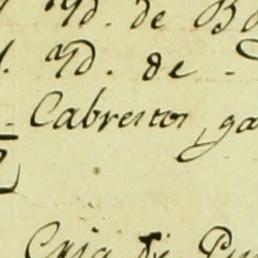 Yd. de B
Yd. de
Cabrestos, ga
Caja de Pu